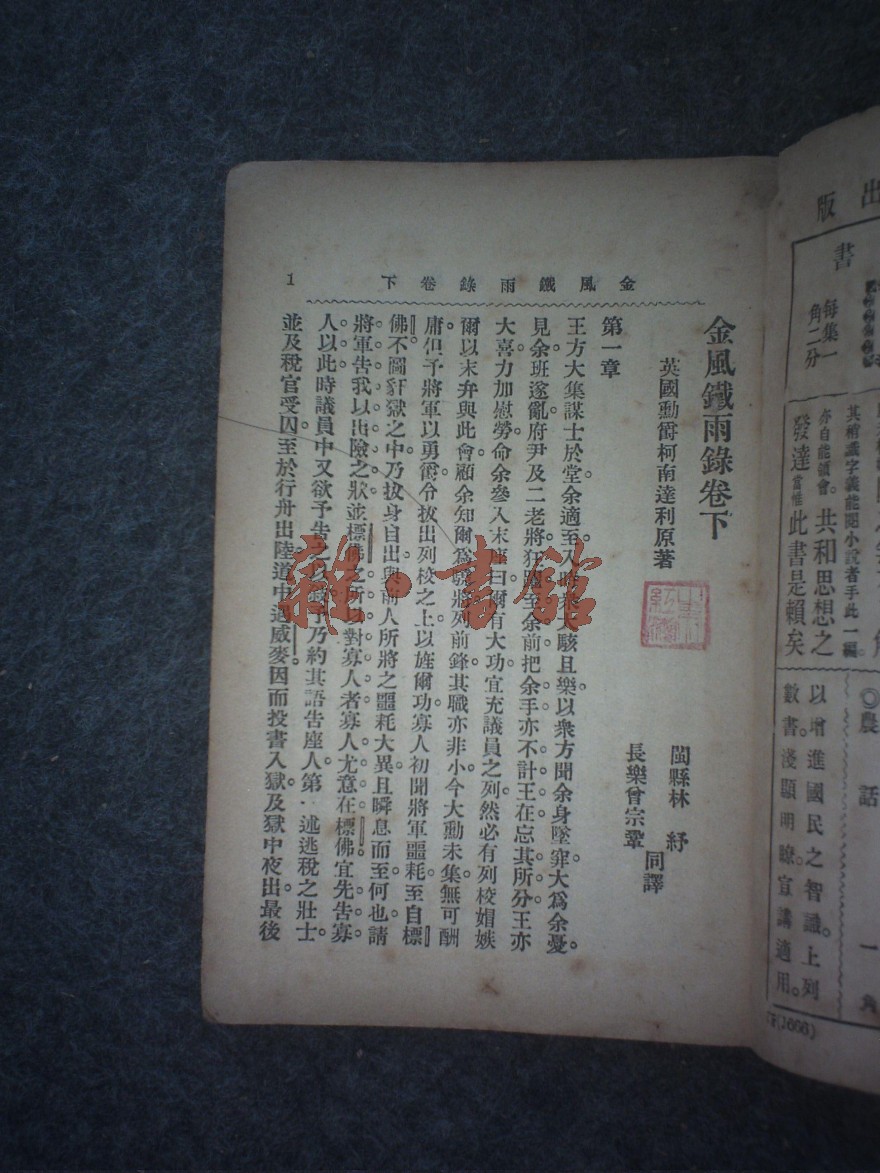 金風鐵雨錄卷下
1
金風鐵雨錄卷下
英國勳爵柯南達利原著
閩縣林紓
長樂曾宗鞏
同譯
第一章
王方大集謀士於堂余適至入時衆大駭且樂以衆方聞余身墜穽大爲余憂。
見余班遂亂府尹及二老將狂至余前把余手亦不計王在忘其所分王亦
大喜力加慰勞命余參入末座曰爾有大功宜充議員之列然必有列校媢嫉
爾以末弁與此會顧余知爾爲驍將列前鋒其職亦非小今大勳未集無可酬
庸但予將軍以勇爵令拔出列校之上以旌爾功寡人初聞將軍噩耗至自標
佛不圖豻獄之中乃拔身自出與前人所將之噩耗大異且瞬息而至何也請
將軍告我以出險之狀並標佛之所以對寡人者寡人尤意在標佛宜先告寡
人以此時議員中又欲予告之以故予乃約其語告座人第一述逃稅之壯士
並及稅官受囚至於行舟出陸道中遇威麥因而投書入獄及獄中夜出最後
出版
書
每集一
角二分
其稍識字義能閱小說者手此一編。
亦自能領會。共和思想之
發達當惟此書是賴矣
◎農話
一角
以增進國民之智識。上列
數書淺顯明瞭宣講適用。
(1606)
雜·書館